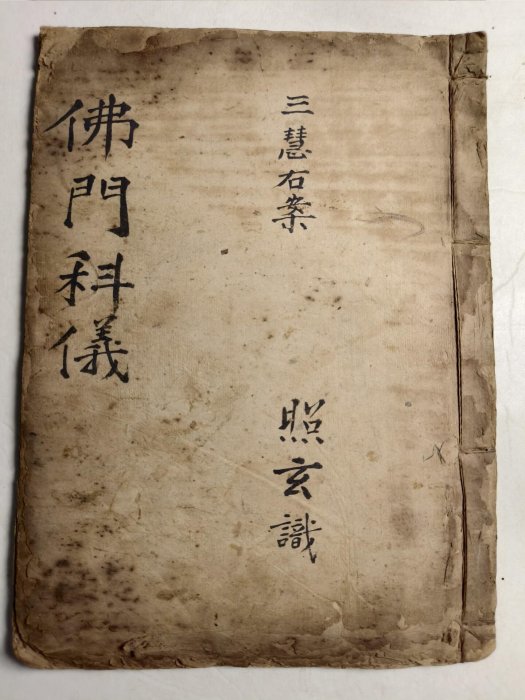 三慧右案
照玄識
佛門科儀